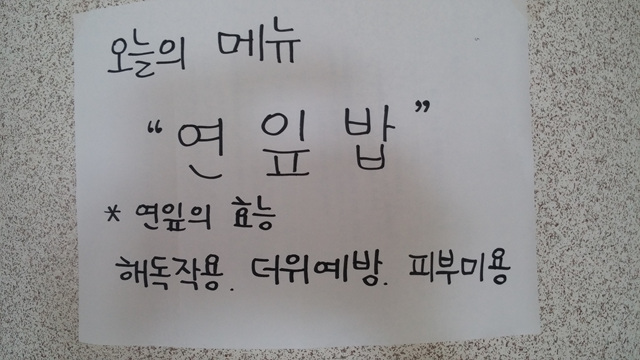 오늘의 메뉴
“연잎밥”
* 연잎의 효능
해독작용. 더위예방. 피부미용